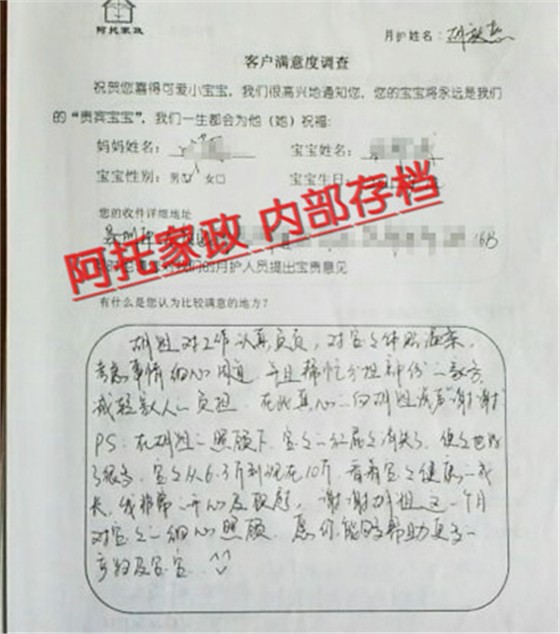 阿托家政
月护姓名：胡
客户满意度调查
祝贺您喜得可爱小宝宝，我们很高兴地通知您，您的宝宝将永远是我们
的“贵宾宝宝”，我们一生都会为他（她）祝福：
妈妈姓名： 宝宝姓名：
宝宝性别：男 女□ 宝宝生日：
您的收件详细地址
16B
阿托家政 内部存档
我们的月护人员提出宝贵意见
有什么是您认为比较满意的地方？
胡姐对工作认真负责，对宝宝体贴温柔，
考虑事情细心周道，并且帮忙分担部份家务
减轻家人负担。在此真心向胡姐说声“谢谢”
PS：在胡姐照顾下，宝宝红屁屁消失了，
了很多，宝宝从6.3斤到现在10斤，看着宝宝健康成
长，我非常开心及欣慰，谢谢胡姐这一个月
对宝宝细心照顾，愿你能够帮助更多
产妇及宝宝 ^^